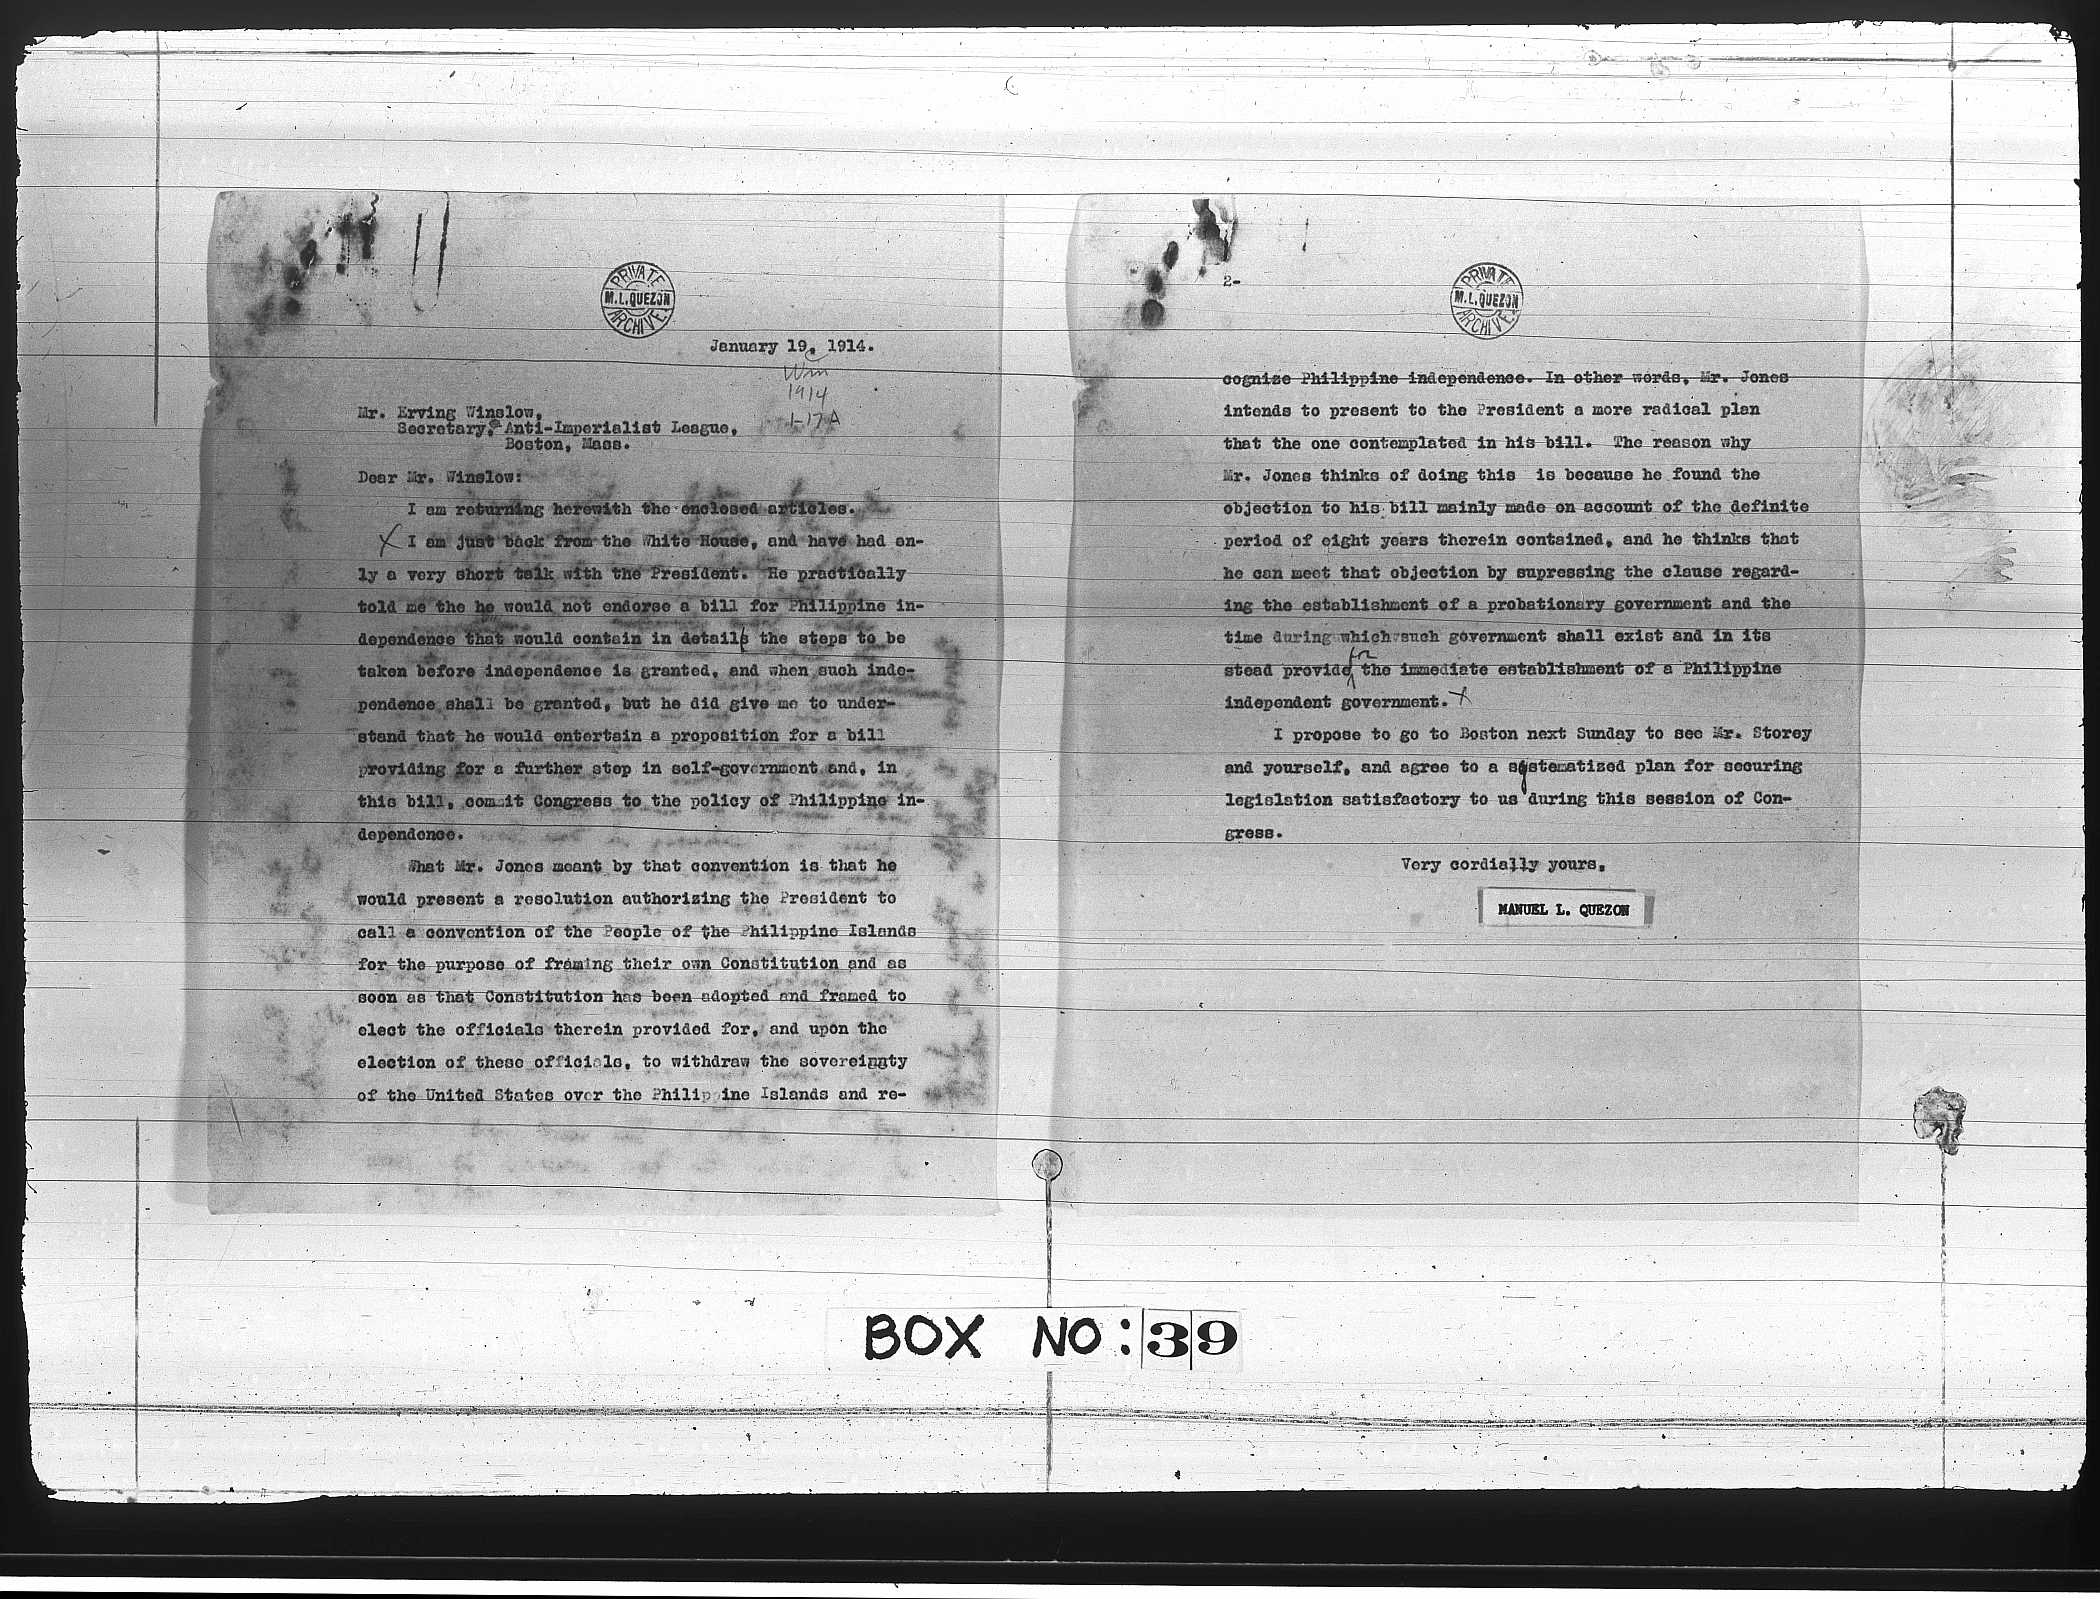 PRIVATE
M.L.QUEZON
ARCHIVE
January 19, 1914.
Win
1914
1-17A
Mr. Erving Winslow,
Secretary, Anti-Imperialist League,
Boston, Mass.
Dear Mr. Winslow:
I am returning herewith the enclosed articles.
X I am just back from the White House, and have had on-
ly a very short talk with the President. He practically
told me the he would not endorse a bill for Philippine in-
dependence that would contain in detail the steps to be
taken before independence is granted, and when such inde-
pendence shall be granted, but he did give me to under-
stand that he would entertain a proposition for a bill
providing for a further step in self-government and, in
this bill, commit Congress to the policy of Philippine in-
dependence.
What Mr. Jones meant by that convention is that he
would present a resolution authorizing the President to
call a convention of the People of the Philippine Islands
for the purpose of framing their own Constitution and as
soon as that Constitution has been adopted and framed to
elect the officials therein provided for, and upon the
election of these officials, to withdraw the sovereignty
of the United States over the Philippine Islands and re-
2-
PRIVATE
M.L.QUEZON
ARCHIVE
cognize Philippine independence. In other words, Mr. Jones
intends to present to the President a more radical plan
that the one contemplated in his bill. The reason why
Mr. Jones thinks of doing this is because he found the
objection to his bill mainly made on account of the definite
period of eight years therein contained, and he thinks that
he can meet that objection by supressing the clause regard-
ing the establishment of a probationary government and the
time during which such government shall exist and in its
stead provide for the immediate establishment of a Philippine
independent government. X
I propose to go to Boston next Sunday to see Mr. Storey
and yourself, and agree to a systematized plan for securing
legislation satisfactory to us during this session of Con-
gress.
Very cordially yours,
MANUEL L. QUEZON
BOX NO: 39